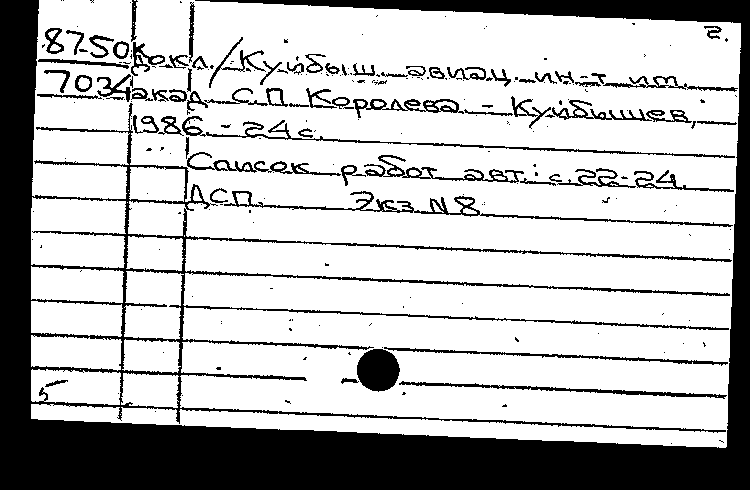 2.
87-50к докл./Куйбыш. авиац. ин-т им.
7034 акад. С.П. Королева. - Куйбышев,
1986. - 24 с.
Список работ авт.: с.22-24.
ДСП. Экз. N 8
5